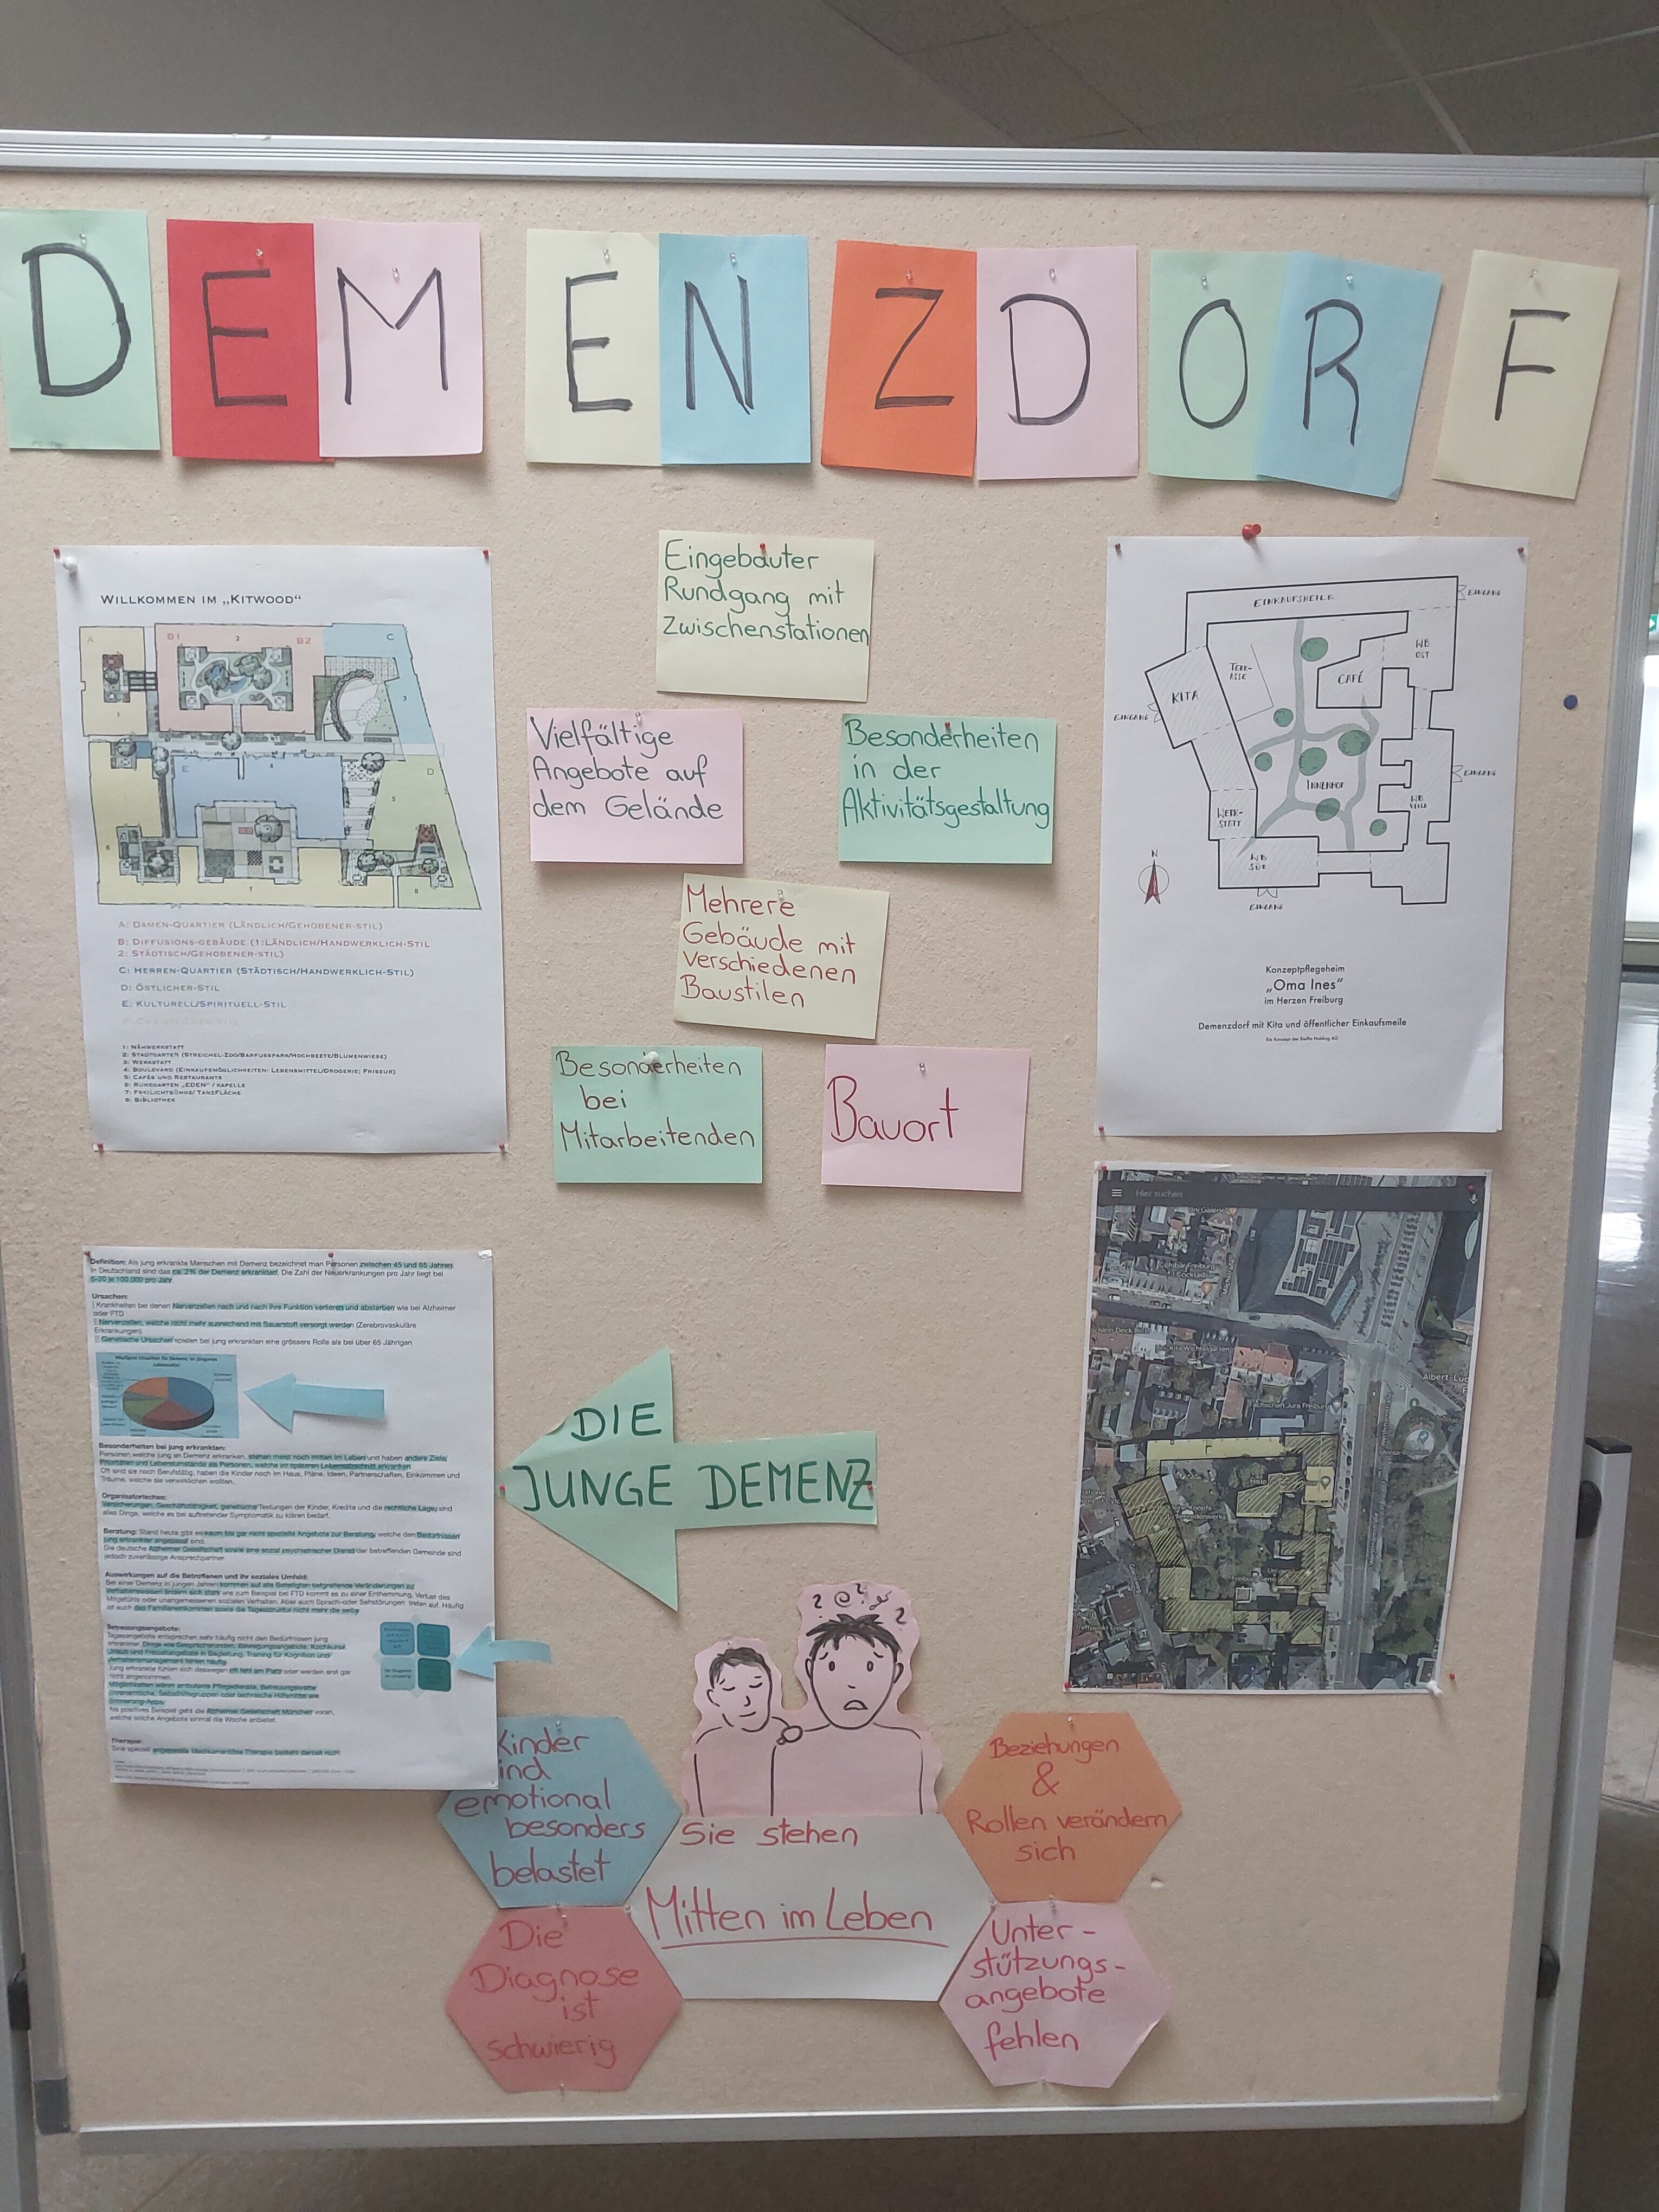 DEMENZDORF
WILLKOMMEN IM „KITWOOD"
A
B1
2
B2
C
3
1
E
4
D
5
6
7
8
A: DAMEN-QUARTIER (LÄNDLICH/GEHOBENER-STIL)
B: DIFFUSIONS-GEBÄUDE (1:LÄNDLICH/HANDWERKLICH-STIL
2: STÄDTISCH/GEHOBENER-STIL)
C: HERREN-QUARTIER (STÄDTISCH/HANDWERKLICH-STIL)
D: ÖSTLICHER-STIL
E: KULTURELL/SPIRITUELL-STIL
1: NÄHWERKSTATT
2: STADTGARTEN (STREICHEL-ZOO/BARFUSSPARK/HOCHBEETE/BLUMENWIESE)
3: WERKSTATT
4: BOULEVARD (EINKAUFSMÖGLICHKEITEN: LEBENSMITTEL/DROGERIE; FRISEUR)
5: CAFÉS UND RESTAURANTS
6: RUHEGARTEN „EDEN" / KAPELLE
7: FREILICHTBÜHNE/ TANZFLÄCHE
8: BIBLIOTHEK
Eingebauter
Rundgang mit
Zwischenstationen
Vielfältige
Angebote auf
dem Gelände
Besonderheiten
in der
Aktivitätsgestaltung
Mehrere
Gebäude mit
verschiedenen
Baustilen
Besonderheiten
bei
Mitarbeitenden
Bauort
EINKAUFSMEILE
EINGANG
WB
OST
TERR-
ASSE
CAFÉ
KITA
EINGANG
EINGANG
INNENHOF
WB
VILLA
WERK-
STATT
WB
SÜD
N
EINGANG
Konzeptpflegeheim
„Oma Ines"
im Herzen Freiburg
Demenzdorf mit Kita und öffentlicher Einkaufsmeile
Hier suchen
Fachschaft Jura Freiburg
Albert-Lud
Definition: Als jung erkrankte Menschen mit Demenz bezeichnet man Personen zwischen 45 und 65 Jahren.
In Deutschland sind das ca. 2% der Demenz erkrankten. Die Zahl der Neuerkrankungen pro Jahr liegt bei
5-20 je 100.000 pro Jahr
Ursachen:
Krankheiten bei denen Nervenzellen nach und nach ihre Funktion verlieren und absterben wie bei Alzheimer
oder FTD
Nervenzellen, welche nicht mehr ausreichend mit Sauerstoff versorgt werden (Zerebrovaskuläre
Erkrankungen)
Genetische Ursachen spielen bei jung erkrankten eine grössere Rolle als bei über 65 Jährigen
Häufigste Ursachen für Demenz im jüngeren
Lebensalter
Besonderheiten bei jung erkrankten:
Personen, welche jung an Demenz erkranken, stehen meist noch mitten im Leben und haben andere Ziele,
Prioritäten und Lebensumstände als Personen, welche im späteren Lebensabschnitt erkranken
Oft sind sie noch Berufstätig, haben die Kinder noch im Haus, Pläne, Ideen, Partnerschaften, Einkommen und
Träume, welche sie verwirklichen wollten.
Organisatorisches:
Versicherungen, Geschäftsfähigkeit, genetische Testungen der Kinder, Kredite und die rechtliche Lage, sind
alles Dinge, welche es bei auftretender Symptomatik zu klären bedarf.
Beratung: Stand heute gibt es kaum bis gar nicht spezielle Angebote zur Beratung, welche den Bedürfnissen
jung erkrankter angepasst sind.
Die deutsche Alzheimer Gesellschaft sowie eine sozial psychiatrischer Dienst der betreffenden Gemeinde sind
jedoch zuverlässige Ansprechpartner.
Auswirkungen auf die Betroffenen und ihr soziales Umfeld:
Bei einer Demenz in jungen Jahren kommen auf alle Beteiligten tiefgreifende Veränderungen zu
Verhaltensweisen ändern sich stark wie zum Beispiel bei FTD kommt es zu einer Enthemmung, Verlust des
Mitgefühls oder unangemessenen sozialen Verhalten. Aber auch Sprach-oder Sehstörungen treten auf. Häufig
ist auch das Familieneinkommen sowie die Tagesstruktur nicht mehr die selbe.
Betreuungsangebote:
Tagesangebote entsprechen sehr häufig nicht den Bedürfnissen jung
erkrankter. Dinge wie Gesprächsrunden, Bewegungsangebote, Kochkurse,
Urlaub und Freizeitangebote in Begleitung, Training für Kognition und
Verhaltensmanagement fehlen häufig.
Jung erkrankte fühlen sich deswegen oft fehl am Platz oder werden erst gar
nicht angenommen.
Möglichkeiten wären ambulante Pflegedienste, Betreuungskräfte
ehrenamtliche, Selbsthilfegruppen oder technische Hilfsmittel wie
Erinnerung-Apps.
Als positives Beispiel geht die Alzheimer Gesellschaft München voran,
welche solche Angebote einmal die Woche anbietet.
Therapie:
Eine speziell angepasste Medikamentöse Therapie besteht derzeit nicht
DIE
JUNGE DEMENZ
? ?
Kinder
ind
emotional
besonders
belastet
Sie stehen
Mitten im Leben
Beziehungen
&
Rollen verändern
sich
Die
Diagnose
ist
schwierig
Unter-
stützungs-
angebote
fehlen